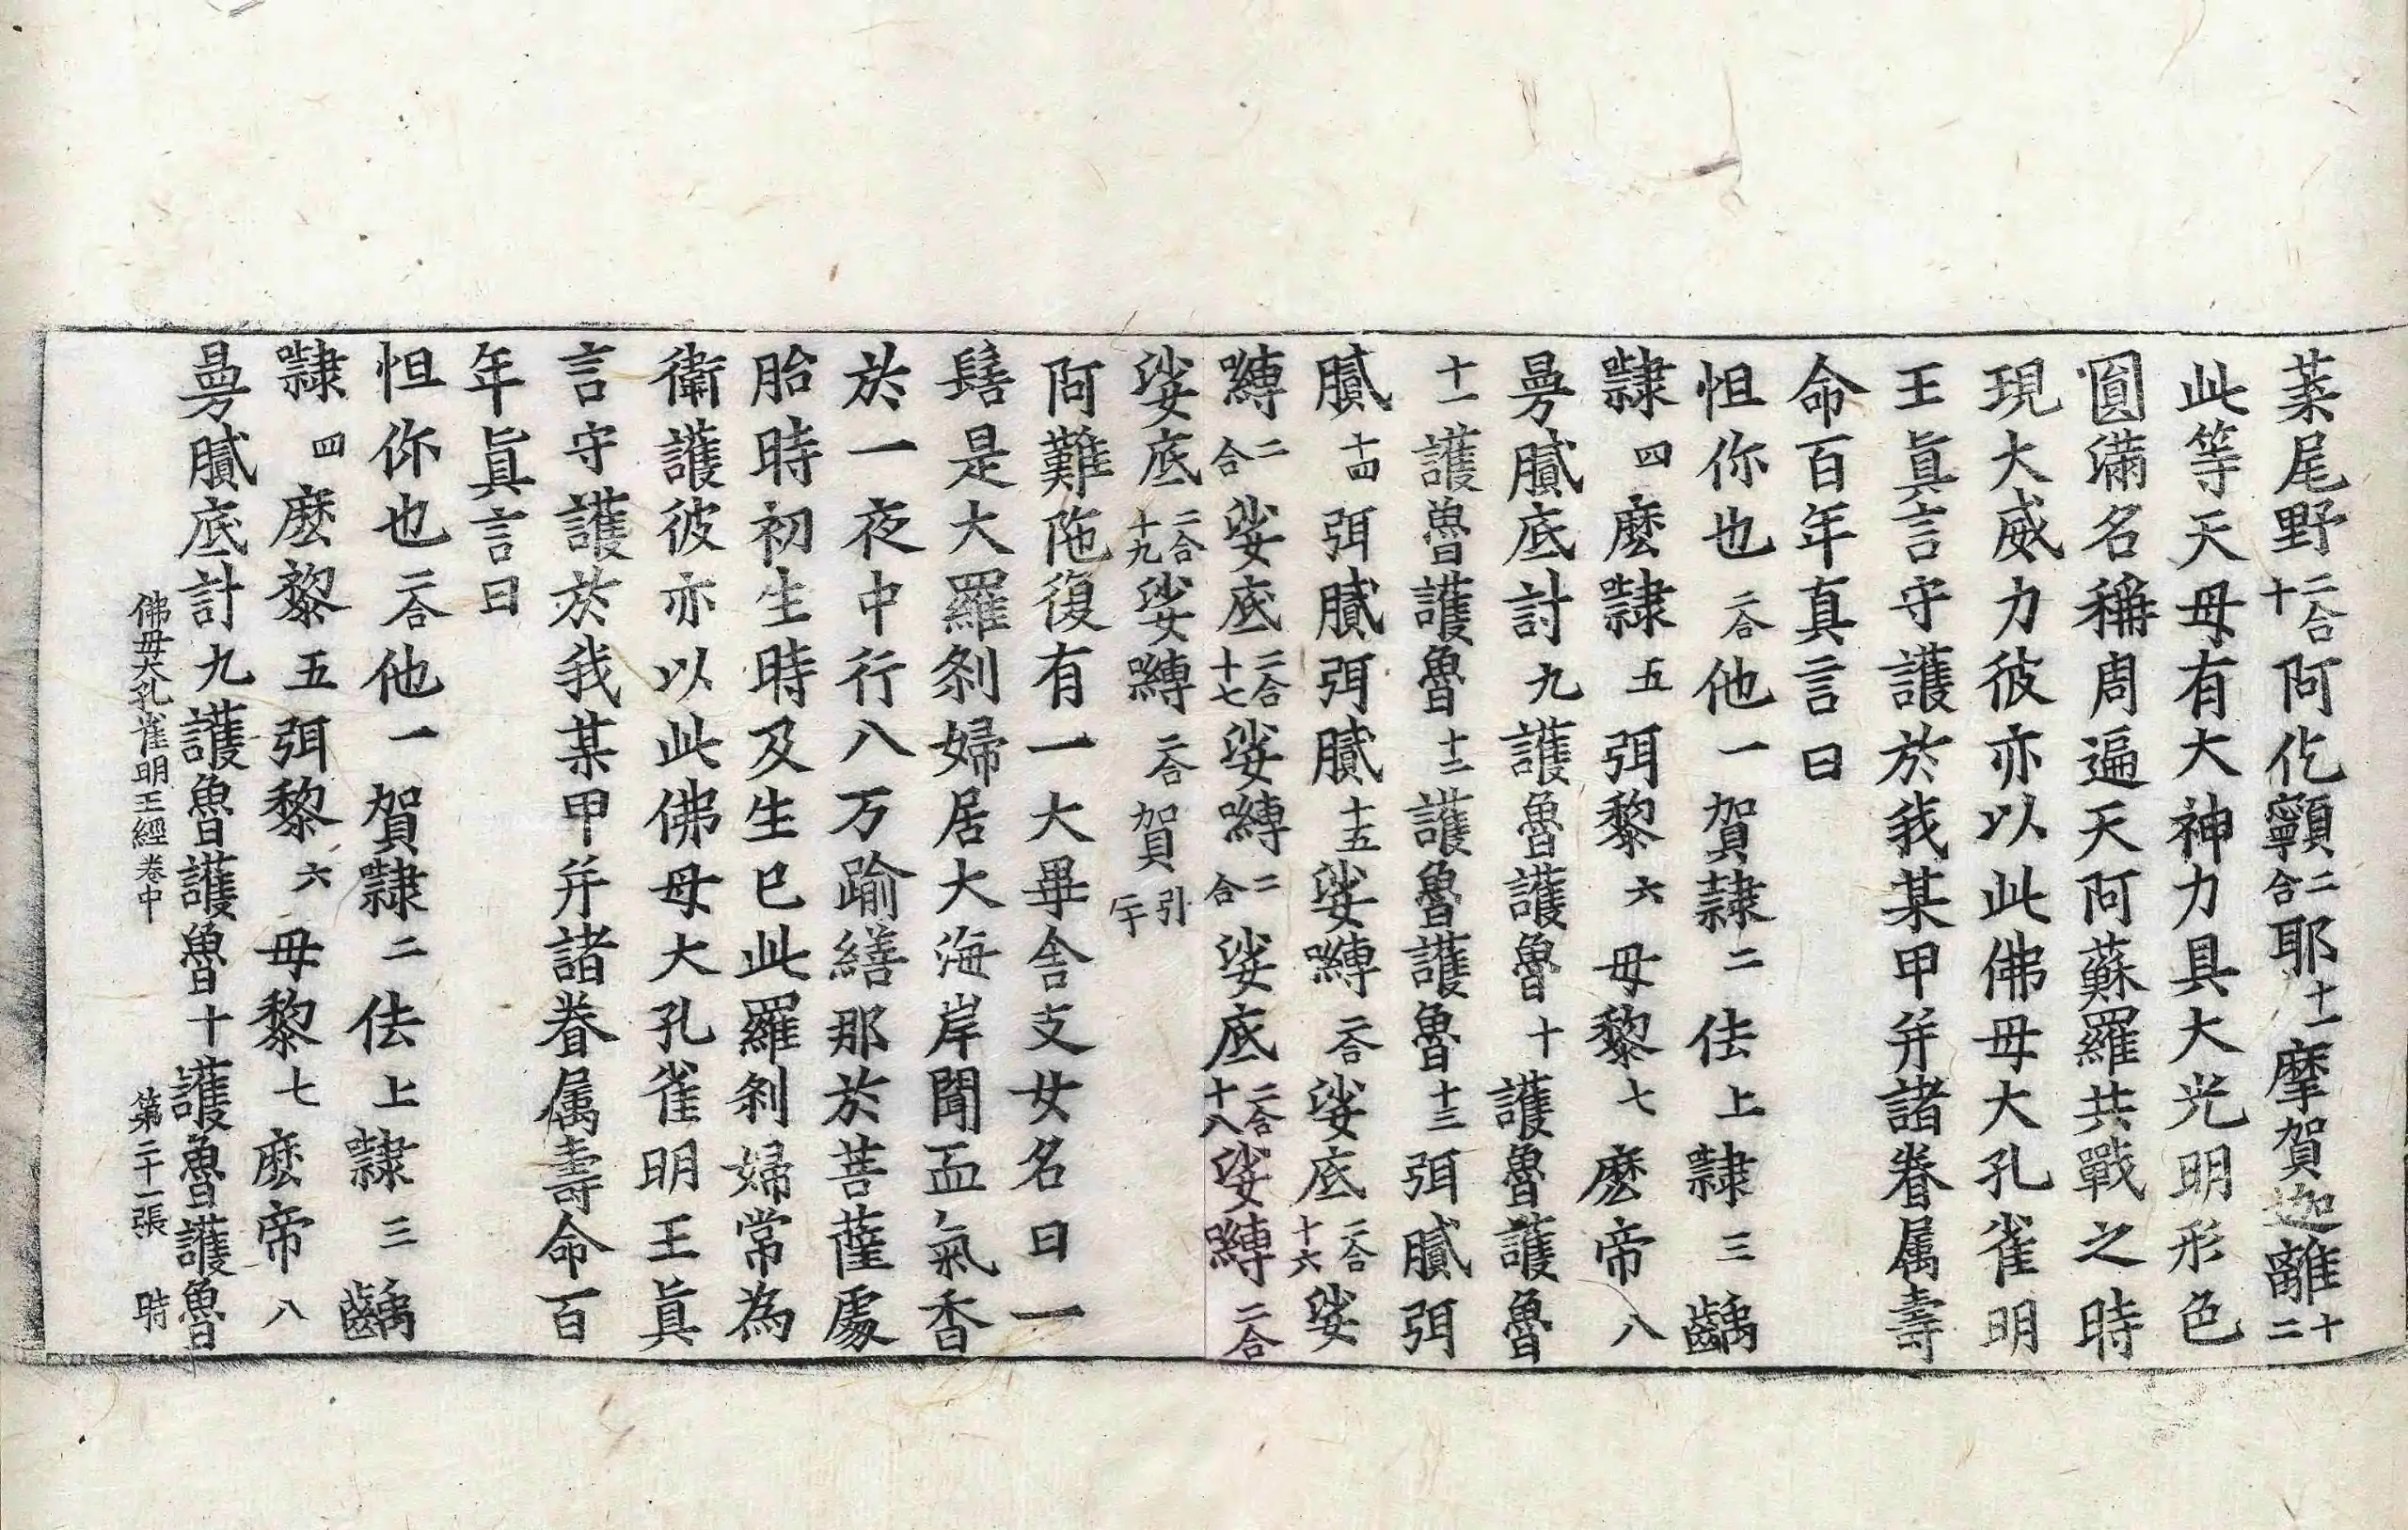 葉尾野二合十阿仡𩕳二合耶十一摩賀迦離十二
此等天母有大神力具大光明形色
圓滿名稱周遍天阿蘇羅共戰之時
現大威力彼亦以此佛母大孔雀明
王眞言守護於我某甲幷諸眷属壽
命百年真言曰
怛你也二合他一賀隷二佉上隷三齲
隷四麽隷五弭黎六母黎七麽帝八
曼膩底討九護魯護魯十護魯護魯
十一護魯護魯十二護魯護魯十三弭膩弭
膩十四弭膩弭膩十五娑嚩二合娑底二合十六娑
嚩二合娑底二合十七娑嚩二合娑底二合十八娑嚩二合
娑底二合十九娑嚩二合賀引二十
阿難陁復有一大畢舍支女名曰一
髻是大羅刹婦居大海岸聞血氣香
於一夜中行八万踰繕那於菩薩處
胎時初生時及生已此羅刹婦常為
衛護彼亦以此佛母大孔雀明王眞
言守護於我某甲幷諸眷属壽命百
年眞言曰
怛你也二合他一賀隷二佉上隷三齲
隷四麽黎五弭黎六母黎七麽帝八
曼膩底計九護魯護魯十護魯護魯
佛母大孔雀明王經卷中 第二十一張 時